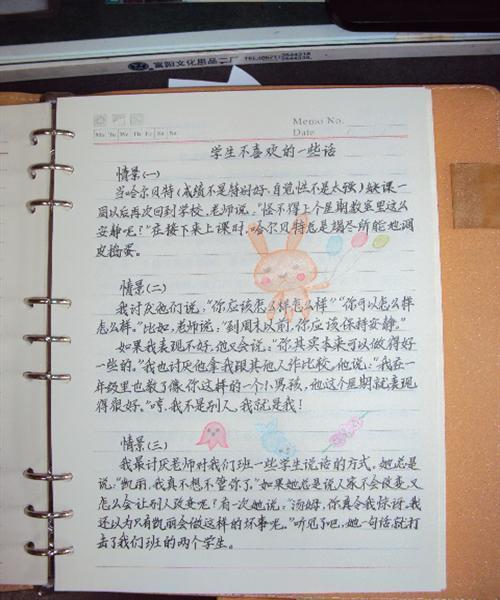 富阳文化用品二厂
Memo No.
Mo Tu We Th Fr Sa Su
Date
学生不喜欢的一些话
情景(一)
当哈尔贝特(成绩不是特别好,自觉性不是太强)缺课一
周以后再次回到学校,老师说:"怪不得上个星期教室里这么
安静呢?"在接下来上课时,哈尔贝特总是竭尽所能地调
皮捣蛋。
情景(二)
我讨厌他们说:"你应该怎么样怎么样""你可以怎么样
怎么样。"比如,老师说:"到周末以前,你应该保持安静。"
如果我表现不好,他又会说:"你其实本来可以做得好
一些的。"我也讨厌他拿我跟其他人作比较。他说:"我在一
年级里也教了像你这样的一个小男孩,他这个星期就表现
得很好。"哼,我不是别人,我就是我!
情景(三)
我最讨厌老师对我们班一些学生说话的方式。她总是
说:"凯丽,我真不想不管你了。"如果她总是说人家不会改变,又
怎么会让别人改变呢?有一次她说:"汤姆,你真令我惊讶,我
还以为只有凯丽会做这样的坏事呢。"听见了吧,她一句话就打
击了我们班的两个学生。